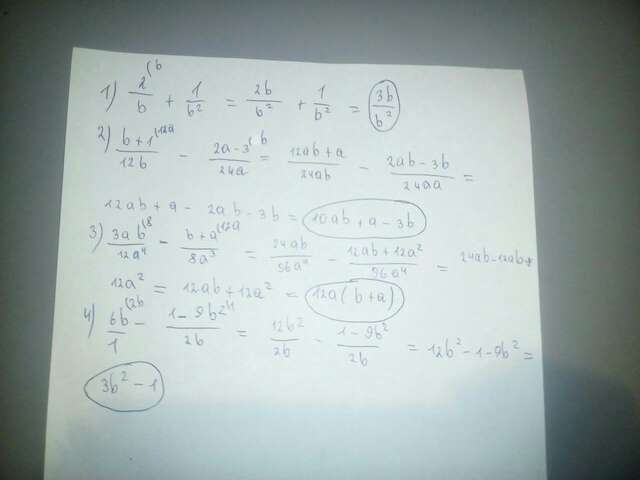 1) 2/b (b + 1/b² = 2b/b² + 1/b² = 3b/b²
2) b+1/12b (12a - 2a-3/24a (b = 12ab+a/24ab - 2ab-3b/24aa =
12ab+a - 2ab-3b = 10ab+a-3b
3) 3ab/12a⁴ (8 - b+a/8a³ (12a = 24ab/96a⁴ - 12ab+12a²/96a⁴ = 24ab-12ab+
12a² = 12ab+12a² = 12a(b+a)
4) 6b/1 (2b - 1-9b²/2b (1 = 12b²/2b - 1-9b²/2b = 12b²-1-9b² =
3b²-1